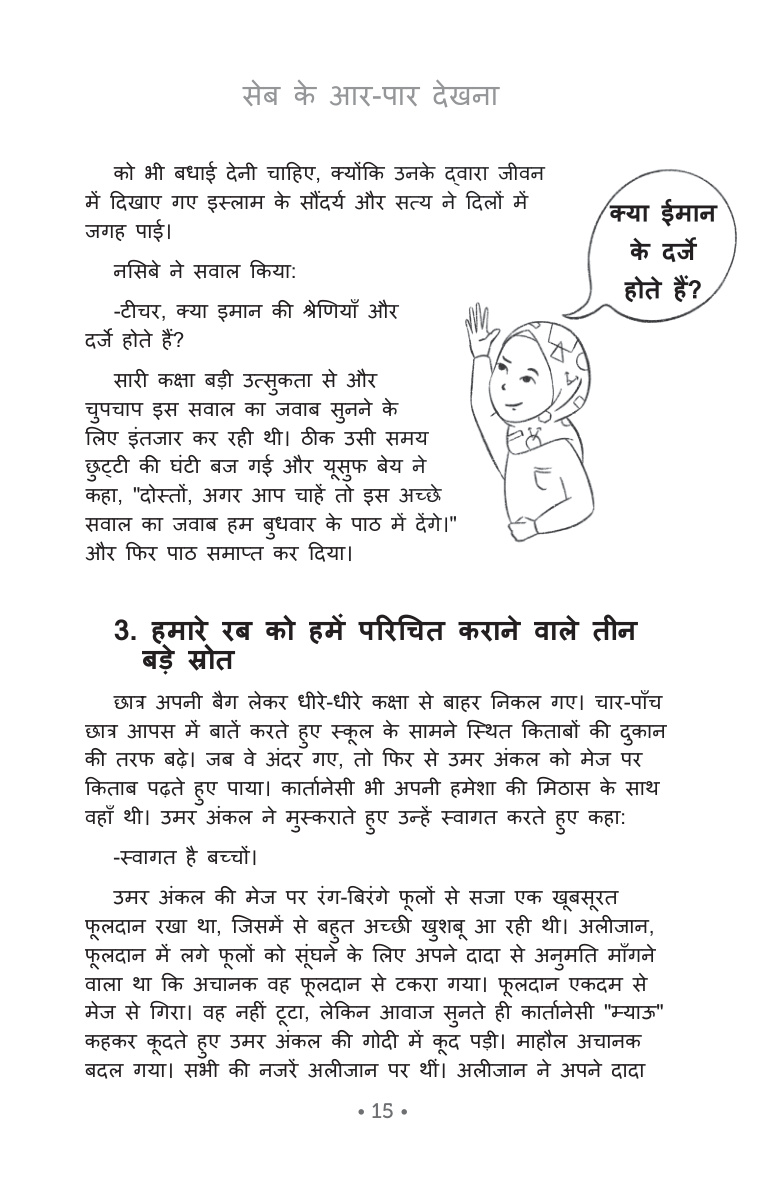 सेब के आर-पार देखना
को भी बधाई देनी चाहिए, क्योंकि उनके द्वारा जीवन
में दिखाए गए इस्लाम के सौंदर्य और सत्य ने दिलों में
जगह पाई।
नसिबे ने सवाल किया:
-टीचर, क्या इमान की श्रेणियाँ और
दर्जे होते हैं?
क्या ईमान
के दर्जे
होते हैं?
सारी कक्षा बड़ी उत्सुकता से और
चुपचाप इस सवाल का जवाब सुनने के
लिए इंतजार कर रही थी। ठीक उसी समय
छुट्टी की घंटी बज गई और यूसुफ बेय ने
कहा, "दोस्तों, अगर आप चाहें तो इस अच्छे
सवाल का जवाब हम बुधवार के पाठ में देंगे।"
और फिर पाठ समाप्त कर दिया।
3. हमारे रब को हमें परिचित कराने वाले तीन
बड़े स्रोत
छात्र अपनी बैग लेकर धीरे-धीरे कक्षा से बाहर निकल गए। चार-पाँच
छात्र आपस में बातें करते हुए स्कूल के सामने स्थित किताबों की दुकान
की तरफ बढ़े। जब वे अंदर गए, तो फिर से उमर अंकल को मेज पर
किताब पढ़ते हुए पाया। कार्तानेसी भी अपनी हमेशा की मिठास के साथ
वहाँ थी। उमर अंकल ने मुस्कराते हुए उन्हें स्वागत करते हुए कहा:
-स्वागत है बच्चों।
उमर अंकल की मेज पर रंग-बिरंगे फूलों से सजा एक खूबसूरत
फूलदान रखा था, जिसमें से बहुत अच्छी खुशबू आ रही थी। अलीजान,
फूलदान में लगे फूलों को सूंघने के लिए अपने दादा से अनुमति माँगने
वाला था कि अचानक वह फूलदान से टकरा गया। फूलदान एकदम से
मेज से गिरा। वह नहीं टूटा, लेकिन आवाज सुनते ही कार्तानेसी "म्याऊ"
कहकर कूदते हुए उमर अंकल की गोदी में कूद पड़ी। माहौल अचानक
बदल गया। सभी की नजरें अलीजान पर थीं। अलीजान ने अपने दादा
• 15 •